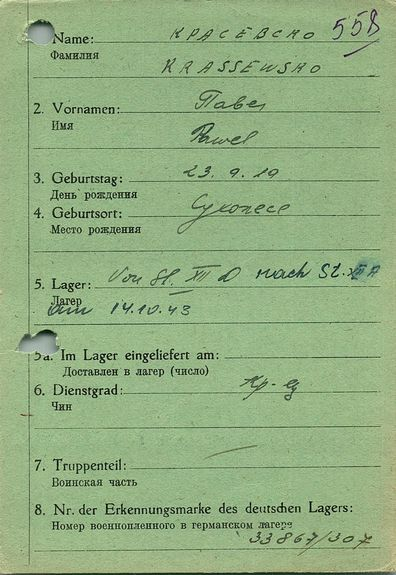 558
Name: КРАСЕВСНО
Фамилия
KRASSEWSHO
2. Vornamen: Павел
Имя
Pawel
3. Geburtstag: 23. 9. 19
День рождения
4. Geburtsort:
Место рождения
5. Lager: Von St. XII D nach St. XII A
Лагер
am 14.10.43
5a. Im Lager eingeliefert am:
Доставлен в лагер (число)
6. Dienstgrad:
Чин
7. Truppenteil: —
Воинская часть
8. Nr. der Erkennungsmarke des deutschen Lagers:
Номер военнопленного в германском лагере
33867/307